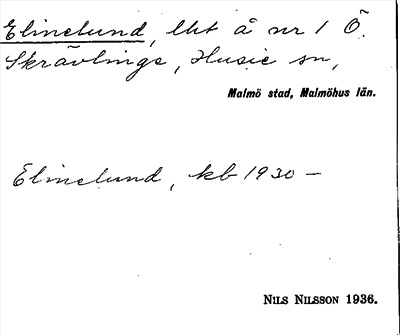 Elinelund, lht å nr 1 Ö.
Skrävlinge, Husie sn,
Malmö stad, Malmöhus län.
Elinelund, kb 1930 —
NILS NILSSON 1936.